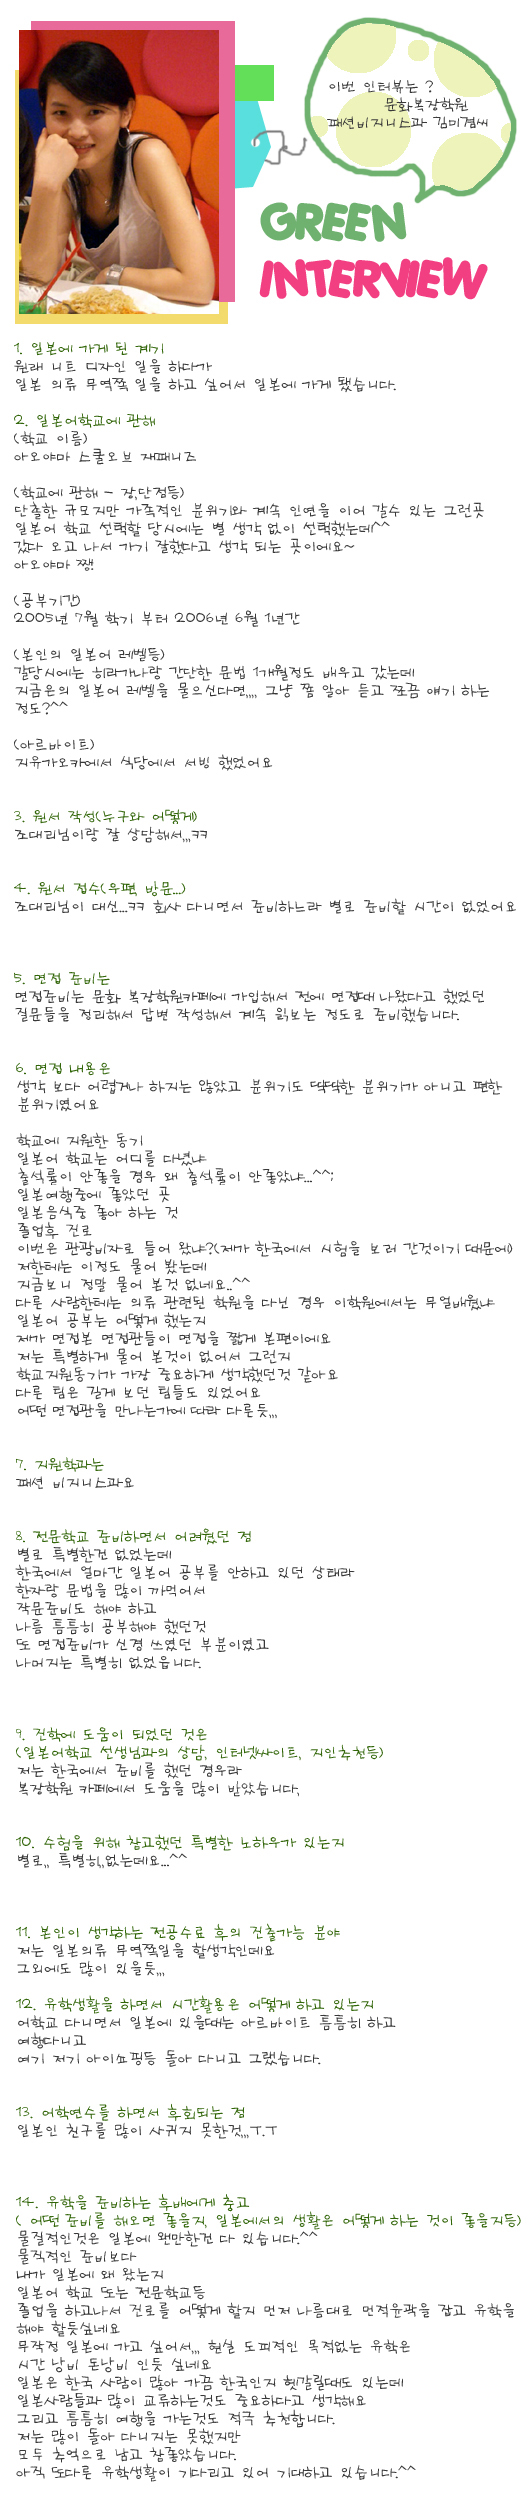 이번 인터뷰는 ?
문화복장학원
패션비지니스과 김미겸씨
GREEN
INTERVIEW
1. 일본에 가게 된 계기
원래 니트 디자인 일을 하다가
일본 의류 무역쪽 일을 하고 싶어서 일본에 가게 됐습니다.
2. 일본어학교에 관해
(학교 이름)
아오야마 스쿨오브 재패니즈
(학교에 관해 - 장,단점등)
단출한 규모지만 가족적인 분위기와 계속 인연을 이어 갈수 있는 그런곳
일본어 학교 선택할 당시에는 별 생각 없이 선택했는데^^
갔다 오고 나서 가기 잘했다고 생각 되는 곳이에요~
아오야마 짱!
(공부기간)
2005년 7월 학기 부터 2006년 6월 1년간
(본인의 일본어 레벨등)
갈당시에는 히라가나랑 간단한 문법 1개월정도 배우고 갔는데
지금은의 일본어 레벨을 물으신다면,,,, 그냥 쫌 알아 듣고 쪼끔 얘기 하는
정도?^^
(아르바이트)
지유가오카에서 식당에서 서빙 했었어요
3. 원서 작성(누구와 어떻게)
조대리님이랑 잘 상담해서,,,ㅋㅋ
4. 원서 접수(우편, 방문...)
조대리님이 대신...ㅋㅋ 회사 다니면서 준비하느라 별로 준비할 시간이 없었어요
5. 면접 준비는
면접준비는 문화 복장학원카페에 가입해서 전에 면접때 나왔다고 했었던
질문들을 정리해서 답변 작성해서 계속 읽보는 정도로 준비했습니다.
6. 면접 내용은
생각 보다 어렵거나 하지는 않았고 분위기도 딱딱한 분위기가 아니고 편한
분위기였어요
학교에 지원한 동기
일본어 학교는 어디를 다녔냐
출석률이 안좋을 경우 왜 출석률이 안좋았냐...^^;
일본여행중에 좋았던 곳
일본음식중 좋아 하는 것
졸업후 진로
이번은 관광비자로 들어 왔냐?(제가 한국에서 시험을 보러 간것이기 때문에)
저한테는 이정도 물어 봤는데
지금보니 정말 물어 본것 없네요..^^
다른 사람한테는 의류 관련된 학원을 다닌 경우 이학원에서는 무얼배웠냐
일본어 공부는 어떻게 했는지
제가 면접본 면접관들이 면접을 짧게 본편이에요
저는 특별하게 물어 본것이 없어서 그런지
학교지원동기가 가장 중요하게 생각했던것 같아요
다른 팀은 길게 보던 팀들도 있었어요
어떤 면접관을 만나는가에 따라 다른듯,,,
7. 지원학과는
패션 비지니스과요
8. 전문학교 준비하면서 어려웠던 점
별로 특별한건 없었는데
한국에서 얼마간 일본어 공부를 안하고 있던 상태라
한자랑 문법을 많이 까먹어서
작문준비도 해야 하고
나름 틈틈히 공부해야 했던것
또 면접준비가 신경 쓰였던 부분이였고
나머지는 특별히 없었읍니다.
9. 진학에 도움이 되었던 것은
(일본어학교 선생님과의 상담, 인터넷싸이트, 지인추천등)
저는 한국에서 준비를 했던 경우라
복장학원 카페에서 도움을 많이 받았습니다,
10. 수험을 위해 참고했던 특별한 노하우가 있는지
별로,, 특별히,,없는데요...^^
11. 본인이 생각하는 전공수료 후의 진출가능 분야
저는 일본의류 무역쪽일을 할생각인데요
그외에도 많이 있을듯,,,
12. 유학생활을 하면서 시간활용은 어떻게 하고 있는지
어학교 다니면서 일본에 있을때는 아르바이트 틈틈히 하고
여행다니고
여기 저기 아이쇼핑등 돌아 다니고 그랬습니다.
13. 어학연수를 하면서 후회되는 점
일본인 친구를 많이 사귀지 못한것,,,ㅜ.ㅜ
14. 유학을 준비하는 후배에게 충고
( 어떤 준비를 해오면 좋을지, 일본에서의 생활은 어떻게 하는 것이 좋을지등)
물질적인것은 일본에 왠만한건 다 있습니다.^^
물직적인 준비보다
내가 일본에 왜 왔는지
일본어 학교 또는 전문학교등
졸업을 하고나서 진로를 어떻게 할지 먼저 나름대로 먼저윤곽을 잡고 유학을
해야 할듯싶네요
무작정 일본에 가고 싶어서,,, 현실 도피적인 목적없는 유학은
시간 낭비 돈낭비 인듯 싶네요
일본은 한국 사람이 많아 가끔 한국인지 헷갈릴때도 있는데
일본사람들과 많이 교류하는것도 중요하다고 생각해요
그리고 틈틈히 여행을 가는것도 적극 추천합니다.
저는 많이 돌아 다니지는 못했지만
모두 추억으로 남고 참좋았습니다.
아직 또다른 유학생활이 기다리고 있어 기대하고 있습니다.^^